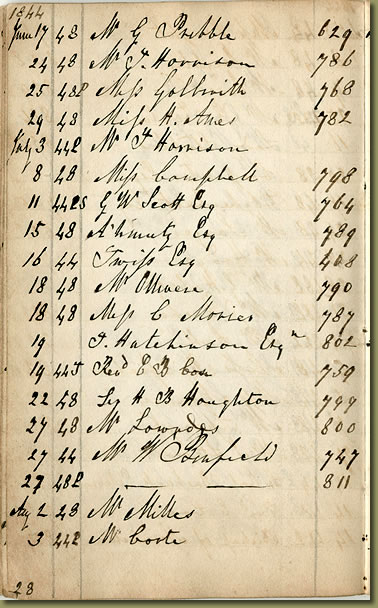 1844
June 17 48 Mr G Prebble 629
24 48 Mr T. Horrison 786
25 48L Miss Golbrith 768
29 48 Miss H. Ames 782
July 3 44L Mr T Horrison
8 48 Miss Campbell 798
11 44LS G W Scott Esq 764
15 48 Esq 789
16 44 Twiss Esq 408
18 48 Mr 790
18 48 Miss C Morier 787
19 T. Hatchinson Esqr 802
19 44S Revd E B Cox 759
22 48 H B Houghton 799
27 48 Mr Lowndes 800
27 44 Mr W Benfield 747
27 48L — — 811
Aug 2 48 Mr Milles
3 44L Mr Corte
28